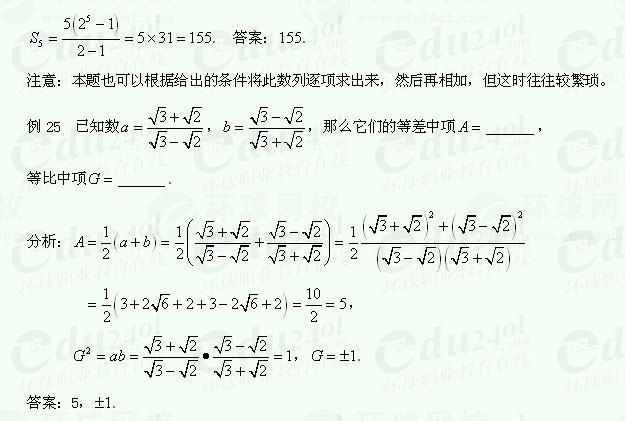 S₅ = 5(2⁵−1)/(2−1) = 5×31 = 155. 答案：155.
注意：本题也可以根据给出的条件将此数列逐项求出来，然后再相加，但这时往往较繁琐。
例 25 已知数a = (√3+√2)/(√3−√2)，b = (√3−√2)/(√3+√2)，那么它们的等差中项A = ______，
等比中项G = ______.
分析：A = 1/2(a+b) = 1/2((√3+√2)/(√3−√2) + (√3−√2)/(√3+√2)) = 1/2 ((√3+√2)²+(√3−√2)²)/((√3−√2)(√3+√2))
= 1/2(3+2√6+2+3−2√6+2) = 10/2 = 5，
G² = ab = (√3+√2)/(√3−√2)•(√3−√2)/(√3+√2) = 1，G = ±1.
答案：5，±1.